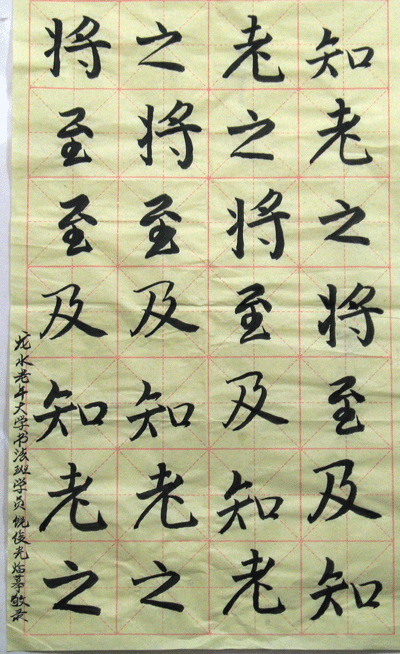 知老之将至及知
老之将至及知老
之将至及知老之
将至至及知老之
水老年大学书法班学员俊光临摹敬录